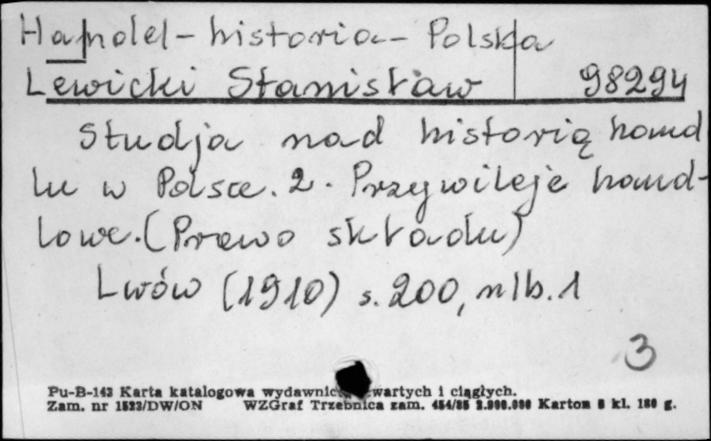 Handel - historia - Polska
Lewicki Stanisław 98294
Studja nad historią hand
lu w Polsce. 2. Przywileje hand-
lowe. (Prawo składu)
Lwów (1910) s. 200, nlb. 1
3
Pu-B-143 Karta katalogowa wydawnic wartych i ciągłych.
Zam. nr 1523/DW/ON WZGraf Trzebnica zam. 454/85 2.000.000 Karton 8 kl. 180 g.